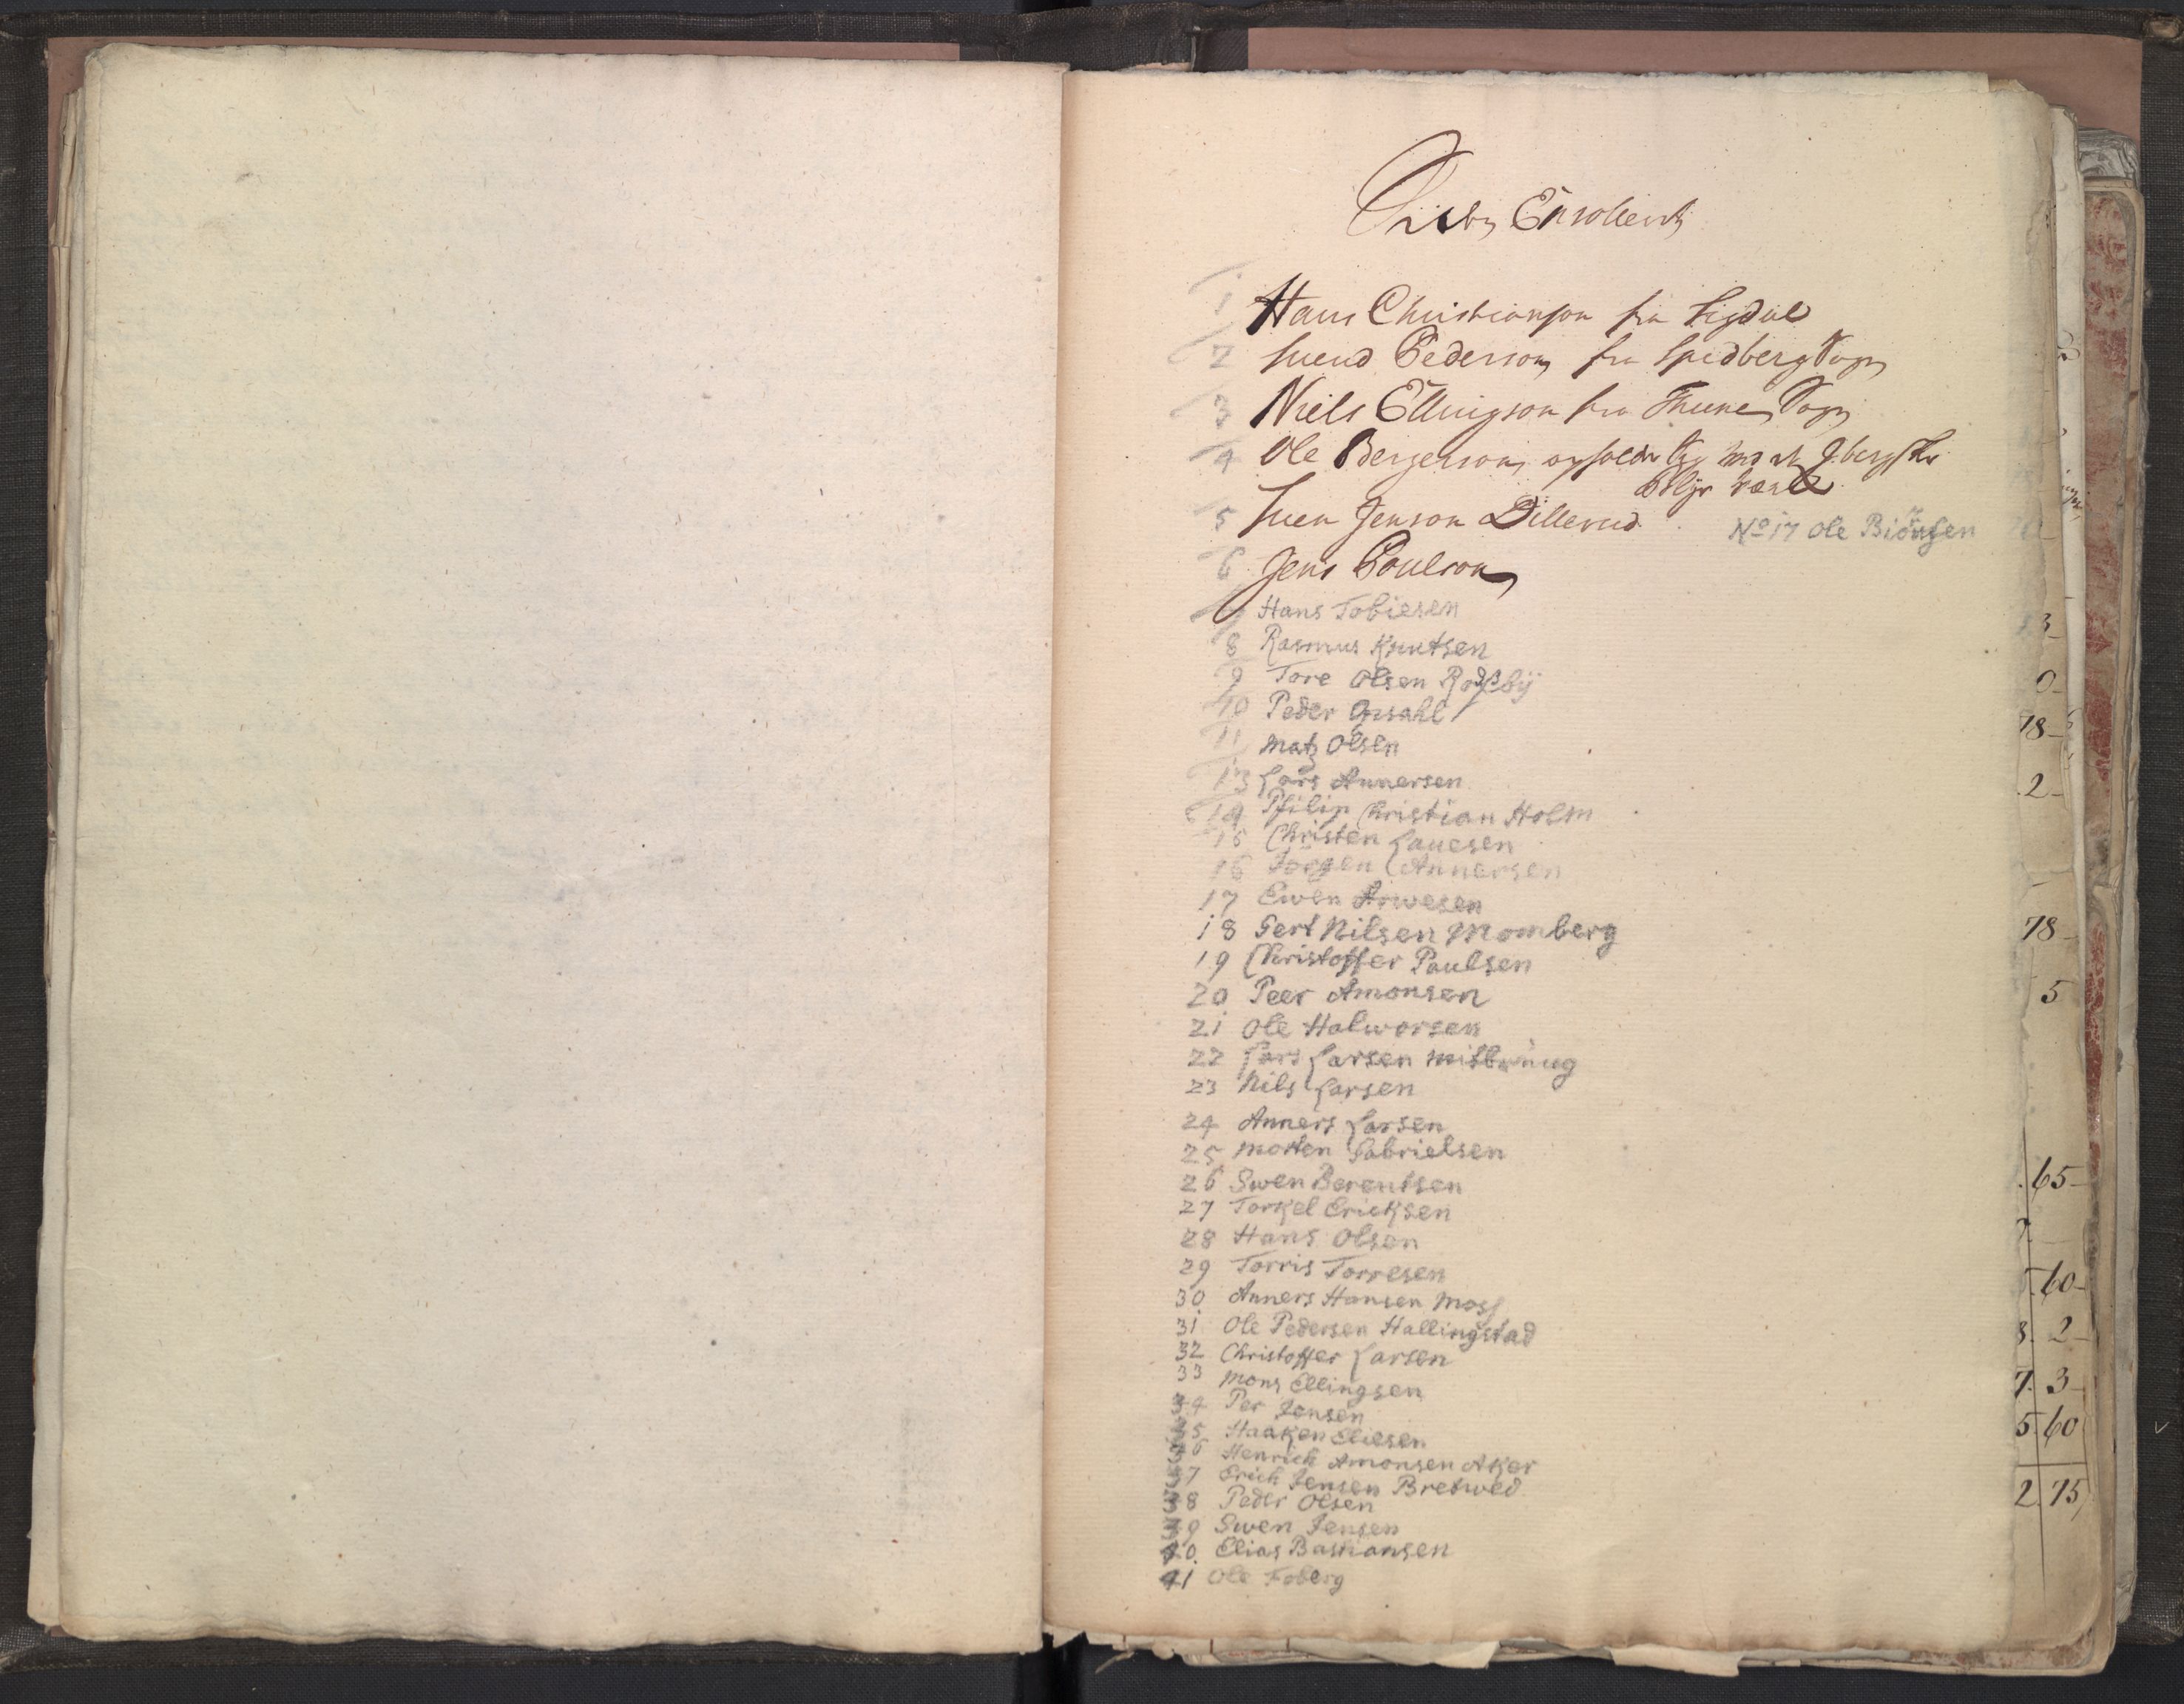 1 Hans Christianson fra Sigdal
2 Svend Pederson fra Spedberg Sogn
3 Niels Ellingson fra Thune Sogn
4 Ole Bergerson
5 Sven Jenson Dillerud
No 17 Ole Biönsen
6 Jens Poulson
Hans Tobiesen
8 Rasmus Knutsen
9 Tore Olsen
10 Peder
11 Matz Olsen
13 Lars Annersen
14 Philip Christian Holm
15 Christen Lauesen
16 Jörgen Annersen
17 Ewen Arwesen
18 Gert Nilsen Momberg
19 Christoffer Paulsen
20 Peer Amonsen
21 Ole Halworsen
22 Lars Larsen
23 Nils Larsen
24 Anners Larsen
25 Morten Gabrielsen
26 Swen Berentsen
27 Torkel Ericksen
28 Hans Olsen
29 Torris Torresen
30 Anners Hansen Moss
31 Ole Pedersen Hallingstad
32 Christoffer Larsen
33 Mons Ellingsen
34 Per Jensen
35 Haaken Eliesen
36 Henrich Amonsen Aker
37 Erich Jensen Bretwed
38 Peder Olsen
39 Swen Jensen
40 Elias Bastiansen
41 Ole Foberg
78
2
78
5
65
60
2
3
5 60
2 75